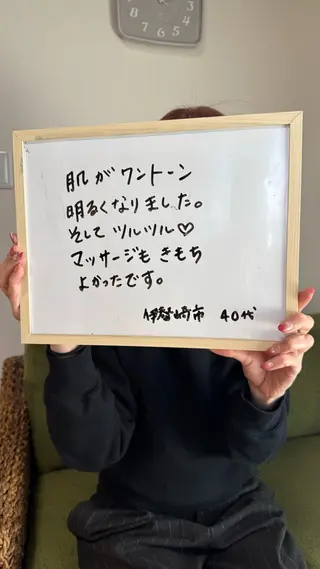 肌がワントーン
明るくなりました。
そしてツルツル♡
マッサージもきもち
よかったです。
伊勢崎市 40代